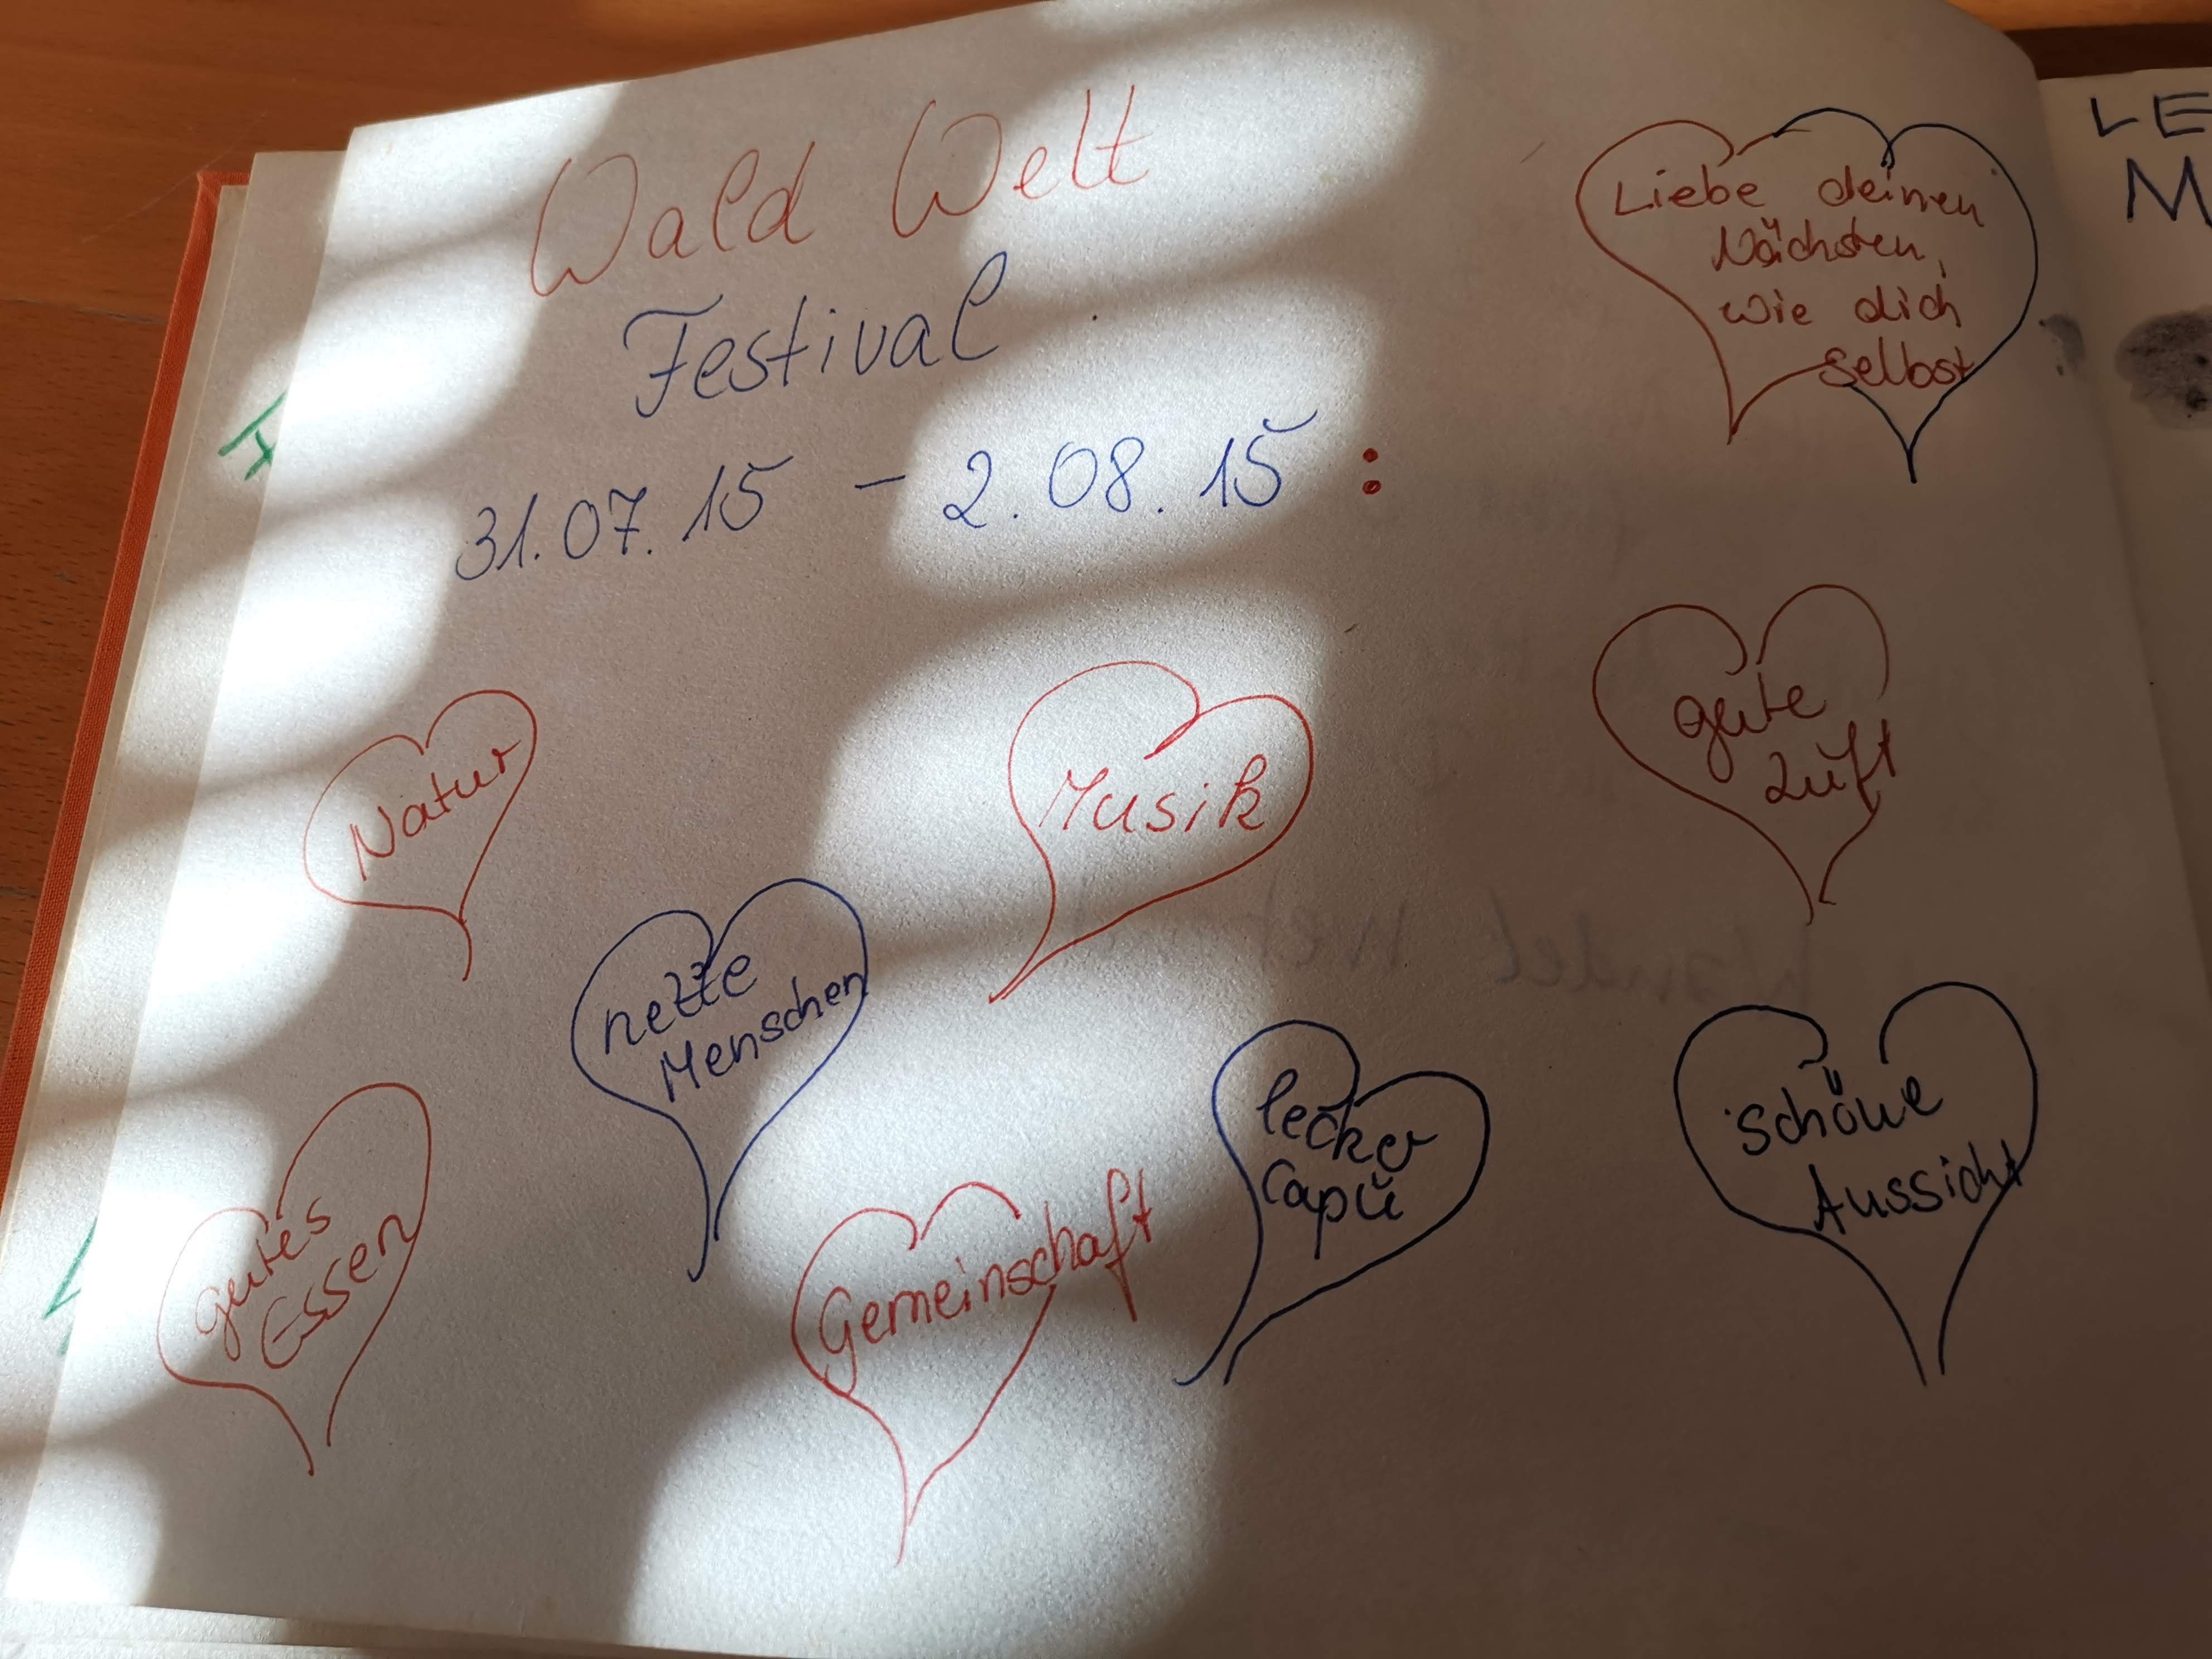 Wald Welt
Festival
31.07.15 – 2.08.15 :
Liebe deinen
Nächsten,
wie dich
selbst
Natur
Musik
gute
Luft
nette
Menschen
lecker
Capu
schöne
Aussicht
gutes
Essen
Gemeinschaft
LE
M